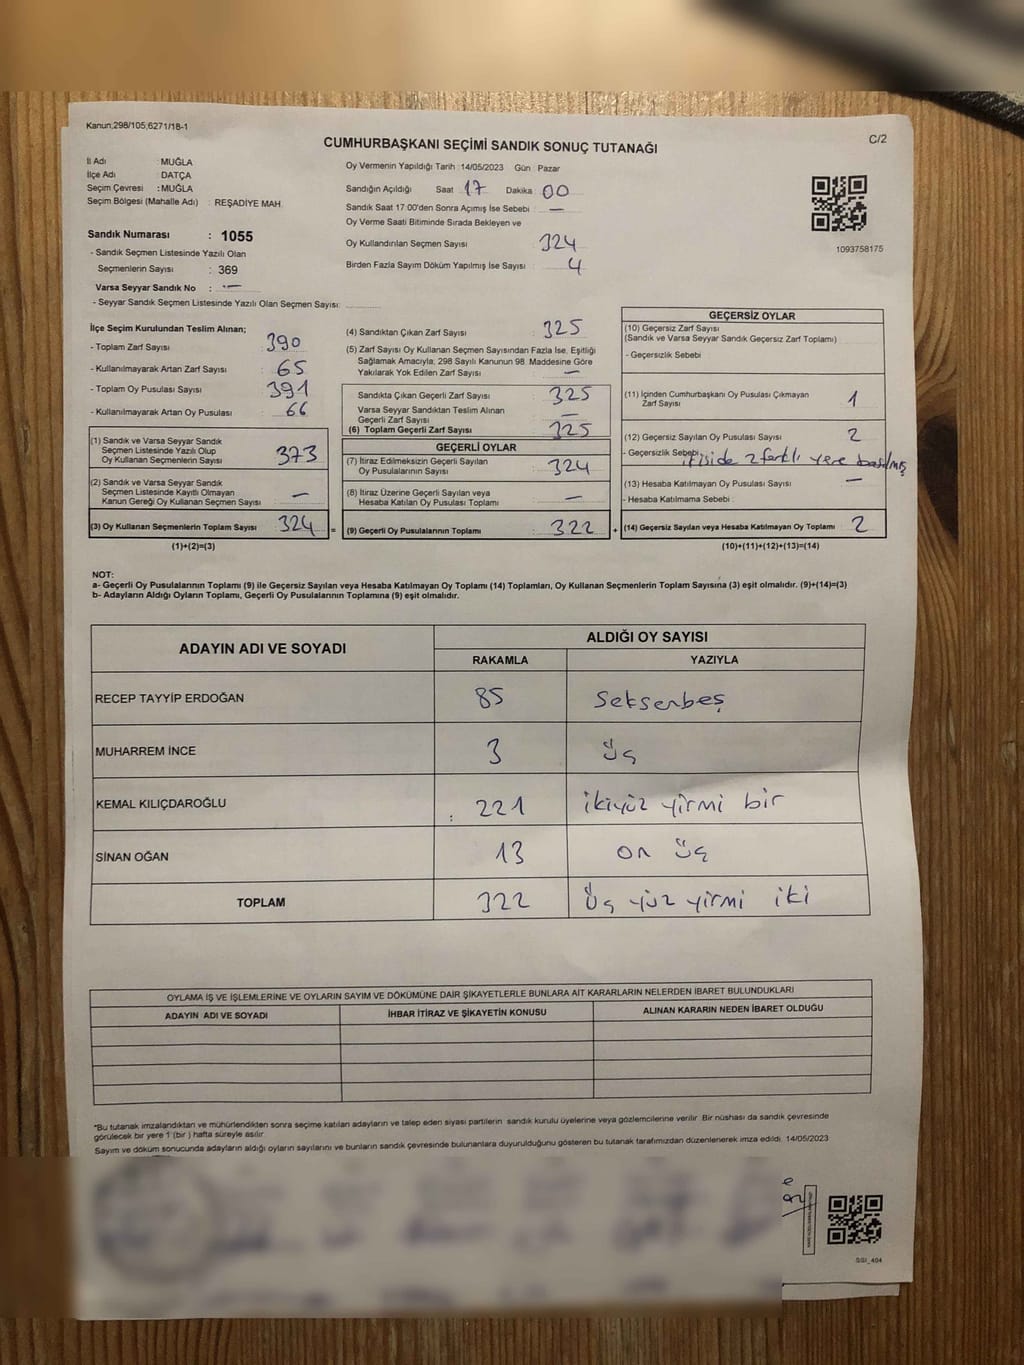 Kanun;298/105;6271/18-1
C/2
CUMHURBAŞKANI SEÇİMİ SANDIK SONUÇ TUTANAĞI
İl Adı : MUĞLA
İlçe Adı : DATÇA
Seçim Çevresi : MUĞLA
Seçim Bölgesi (Mahalle Adı) : REŞADİYE MAH.
Sandık Numarası : 1055
- Sandık Seçmen Listesinde Yazılı Olan
Seçmenlerin Sayısı : 369
Varsa Seyyar Sandık No : —
- Seyyar Sandık Seçmen Listesinde Yazılı Olan Seçmen Sayısı:
Oy Vermenin Yapıldığı Tarih :14/05/2023 Gün Pazar
Sandığın Açıldığı Saat 17 Dakika 00
Sandık Saat 17:00'den Sonra Açımış İse Sebebi : —
Oy Verme Saati Bitiminde Sırada Bekleyen ve
Oy Kullandırılan Seçmen Sayısı : 324
Birden Fazla Sayım Döküm Yapılmış İse Sayısı : 4
1093758175
İlçe Seçim Kurulundan Teslim Alınan;
- Toplam Zarf Sayısı : 390
- Kullanılmayarak Artan Zarf Sayısı : 65
- Toplam Oy Pusulası Sayısı : 391
- Kullanılmayarak Artan Oy Pusulası : 66
(1) Sandık ve Varsa Seyyar Sandık
Seçmen Listesinde Yazılı Olup
Oy Kullanan Seçmenlerin Sayısı : 373
(2) Sandık ve Varsa Seyyar Sandık
Seçmen Listesinde Kayıtlı Olmayan
Kanun Gereği Oy Kullanan Seçmen Sayısı : —
(3) Oy Kullanan Seçmenlerin Toplam Sayısı : 324
(1)+(2)=(3)
(4) Sandıktan Çıkan Zarf Sayısı : 325
(5) Zarf Sayısı Oy Kullanan Seçmen Sayısından Fazla İse, Eşitliği
Sağlamak Amacıyla; 298 Sayılı Kanunun 98. Maddesine Göre
Yakılarak Yok Edilen Zarf Sayısı : —
Sandıkta Çıkan Geçerli Zarf Sayısı : 325
Varsa Seyyar Sandıktan Teslim Alınan
Geçerli Zarf Sayısı : —
(6) Toplam Geçerli Zarf Sayısı : 325
GEÇERLİ OYLAR
(7) İtiraz Edilmeksizin Geçerli Sayılan
Oy Pusulalarının Sayısı : 324
(8) İtiraz Üzerine Geçerli Sayılan veya
Hesaba Katılan Oy Pusulası Toplamı : —
= (9) Geçerli Oy Pusulalarının Toplamı : 322 +
GEÇERSİZ OYLAR
(10) Geçersiz Zarf Sayısı
(Sandık ve Varsa Seyyar Sandık Geçersiz Zarf Toplamı) :
- Geçersizlik Sebebi
(11) İçinden Cumhurbaşkanı Oy Pusulası Çıkmayan
Zarf Sayısı : 1
(12) Geçersiz Sayılan Oy Pusulası Sayısı : 2
- Geçersizlik Sebebi ikiside 2 farklı yere basılmış
(13) Hesaba Katılmayan Oy Pusulası Sayısı : —
- Hesaba Katılmama Sebebi :
(14) Geçersiz Sayılan veya Hesaba Katılmayan Oy Toplamı : 2
(10)+(11)+(12)+(13)=(14)
NOT:
a- Geçerli Oy Pusulalarının Toplamı (9) ile Geçersiz Sayılan veya Hesaba Katılmayan Oy Toplamı (14) Toplamları, Oy Kullanan Seçmenlerin Toplam Sayısına (3) eşit olmalıdır. (9)+(14)=(3)
b- Adayların Aldığı Oyların Toplamı, Geçerli Oy Pusulalarının Toplamına (9) eşit olmalıdır.
ADAYIN ADI VE SOYADI ALDIĞI OY SAYISI
RAKAMLA YAZIYLA
RECEP TAYYİP ERDOĞAN 85 Seksenbeş
MUHARREM İNCE 3 üç
KEMAL KILIÇDAROĞLU : 221 ikiyüz yirmi bir
SİNAN OĞAN 13 on üç
TOPLAM 322 üç yüz yirmi iki
OYLAMA İŞ VE İŞLEMLERİNE VE OYLARIN SAYIM VE DÖKÜMÜNE DAİR ŞİKAYETLERLE BUNLARA AİT KARARLARIN NELERDEN İBARET BULUNDUKLARI
ADAYIN ADI VE SOYADI İHBAR İTİRAZ VE ŞİKAYETİN KONUSU ALINAN KARARIN NEDEN İBARET OLDUĞU
*Bu tutanak imzalandıktan ve mühürlendikten sonra seçime katılan adayların ve talep eden siyasi partilerin sandık kurulu üyelerine veya gözlemcilerine verilir. Bir nüshası da sandık çevresinde
görülecek bir yere 1 (bir ) hafta süreyle asılır.
Sayım ve döküm sonucunda adayların aldığı oyların sayılarını ve bunların sandık çevresinde bulunanlara duyurulduğunu gösteren bu tutanak tarafımızdan düzenlenerek imza edildi. 14/05/2023